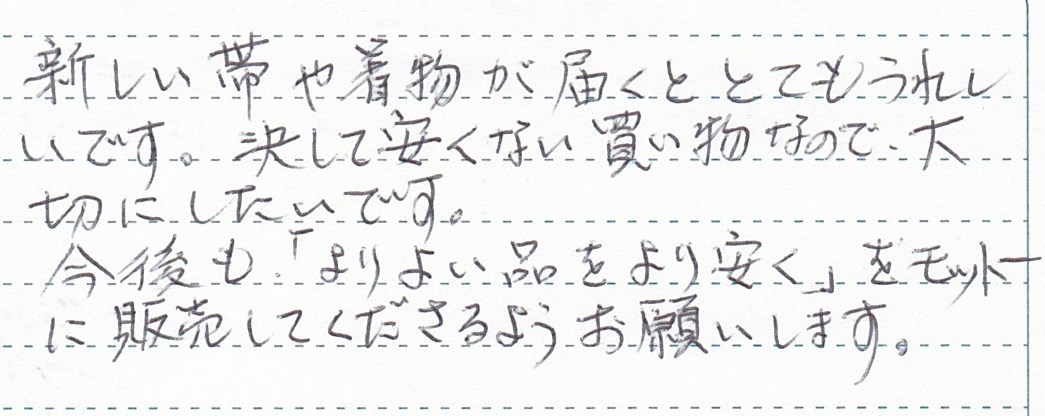 新しい帯や着物が届くととてもうれし
いです。決して安くない買い物なので、大
切にしたいです。
今後も、「よりよい品をより安く」をモットー
に販売してくださるようお願いします。